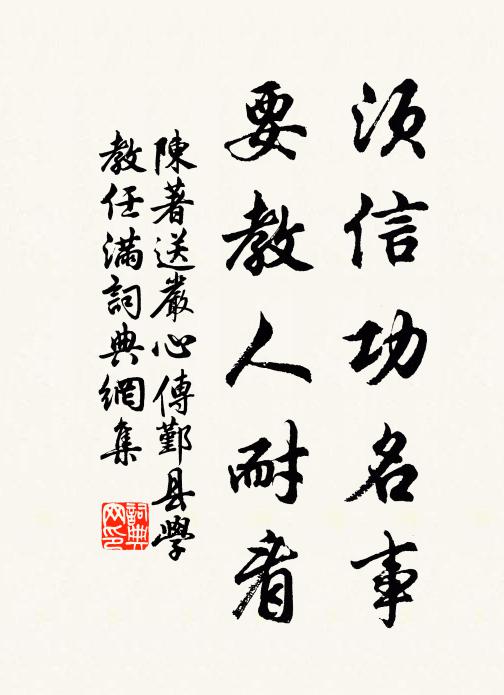 須信功名事
要教人耐看
陳著送嚴心傳鄞县學
教任滿詞典網集
詞典网印